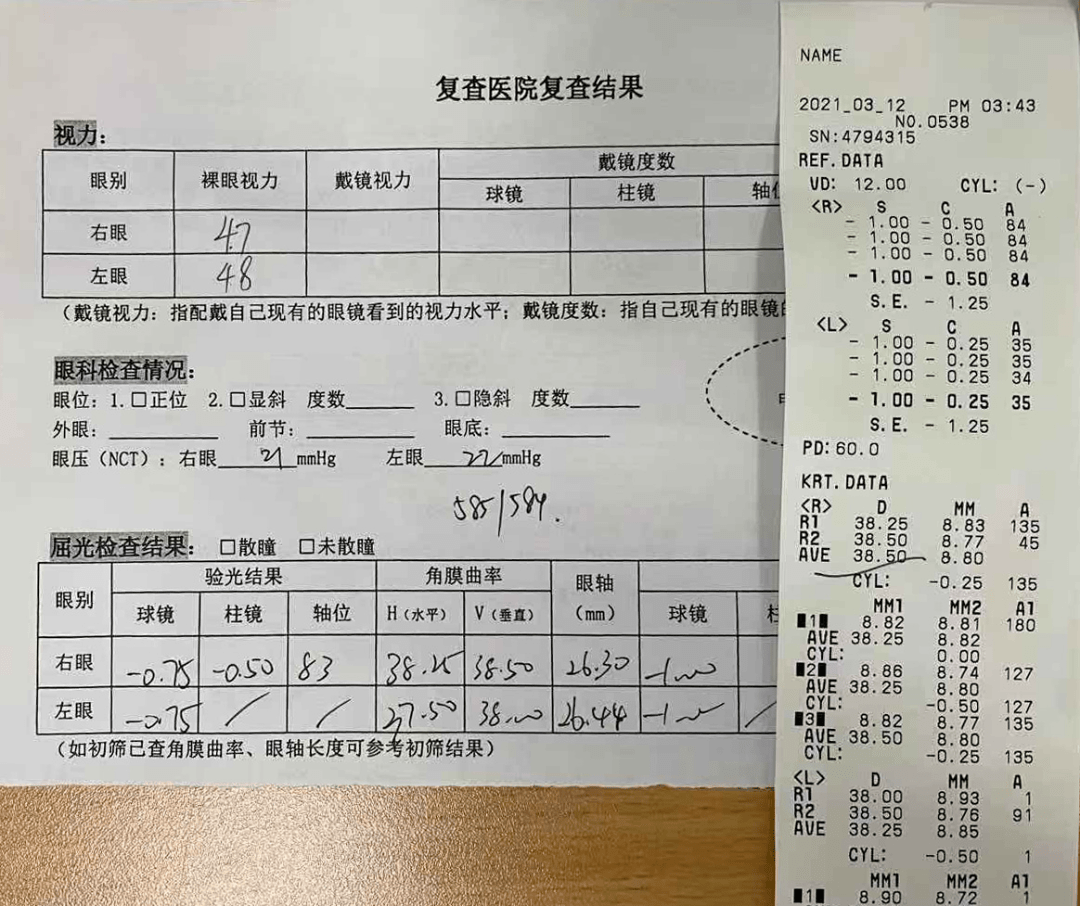 复查医院复查结果
视力：
眼别 裸眼视力 戴镜视力 戴镜度数
球镜 柱镜
右眼 4.7
左眼 4.8
（戴镜视力：指配戴自己现有的眼镜看到的视力水平；戴镜度数：指自己现有的眼镜
眼科检查情况：
眼位：1.□正位 2.□显斜 度数______ 3.□隐斜 度数______
外眼：______ 前节：______ 眼底：______
眼压（NCT）：右眼 21 mmHg 左眼 22 mmHg
585/584.
屈光检查结果： □散瞳 □未散瞳
眼别 验光结果 角膜曲率 眼轴（mm）
球镜 柱镜 轴位 H（水平） V（垂直） 球镜
右眼 -0.75 -0.50 83 38.25 38.50 26.30 -1.00
左眼 -0.75 / / 37.50 38.00 26.44 -1.00 /
（如初筛已查角膜曲率、眼轴长度可参考初筛结果）
NAME
2021_03_12 PM 03:43
NO.0538
SN:4794315
REF.DATA
VD: 12.00 CYL: (-)
<R> S C A
- 1.00 - 0.50 84
- 1.00 - 0.50 84
- 1.00 - 0.50 84
- 1.00 - 0.50 84
S.E. - 1.25
<L> S C A
- 1.00 - 0.25 35
- 1.00 - 0.25 35
- 1.00 - 0.25 34
- 1.00 - 0.25 35
S.E. - 1.25
PD:60.0
KRT.DATA
<R> D MM A
R1 38.25 8.83 135
R2 38.50 8.77 45
AVE 38.50 8.80
CYL: -0.25 135
MM1 MM2 A1
1 8.82 8.81 180
AVE 38.25 8.82
CYL: 0.00
2 8.86 8.74 127
AVE 38.25 8.80
CYL: -0.50 127
3 8.82 8.77 135
AVE 38.50 8.80
CYL: -0.25 135
<L> D MM A
R1 38.00 8.93 1
R2 38.50 8.76 91
AVE 38.25 8.85
CYL: -0.50 1
MM1 MM2 A1
1 8.90 8.72 1